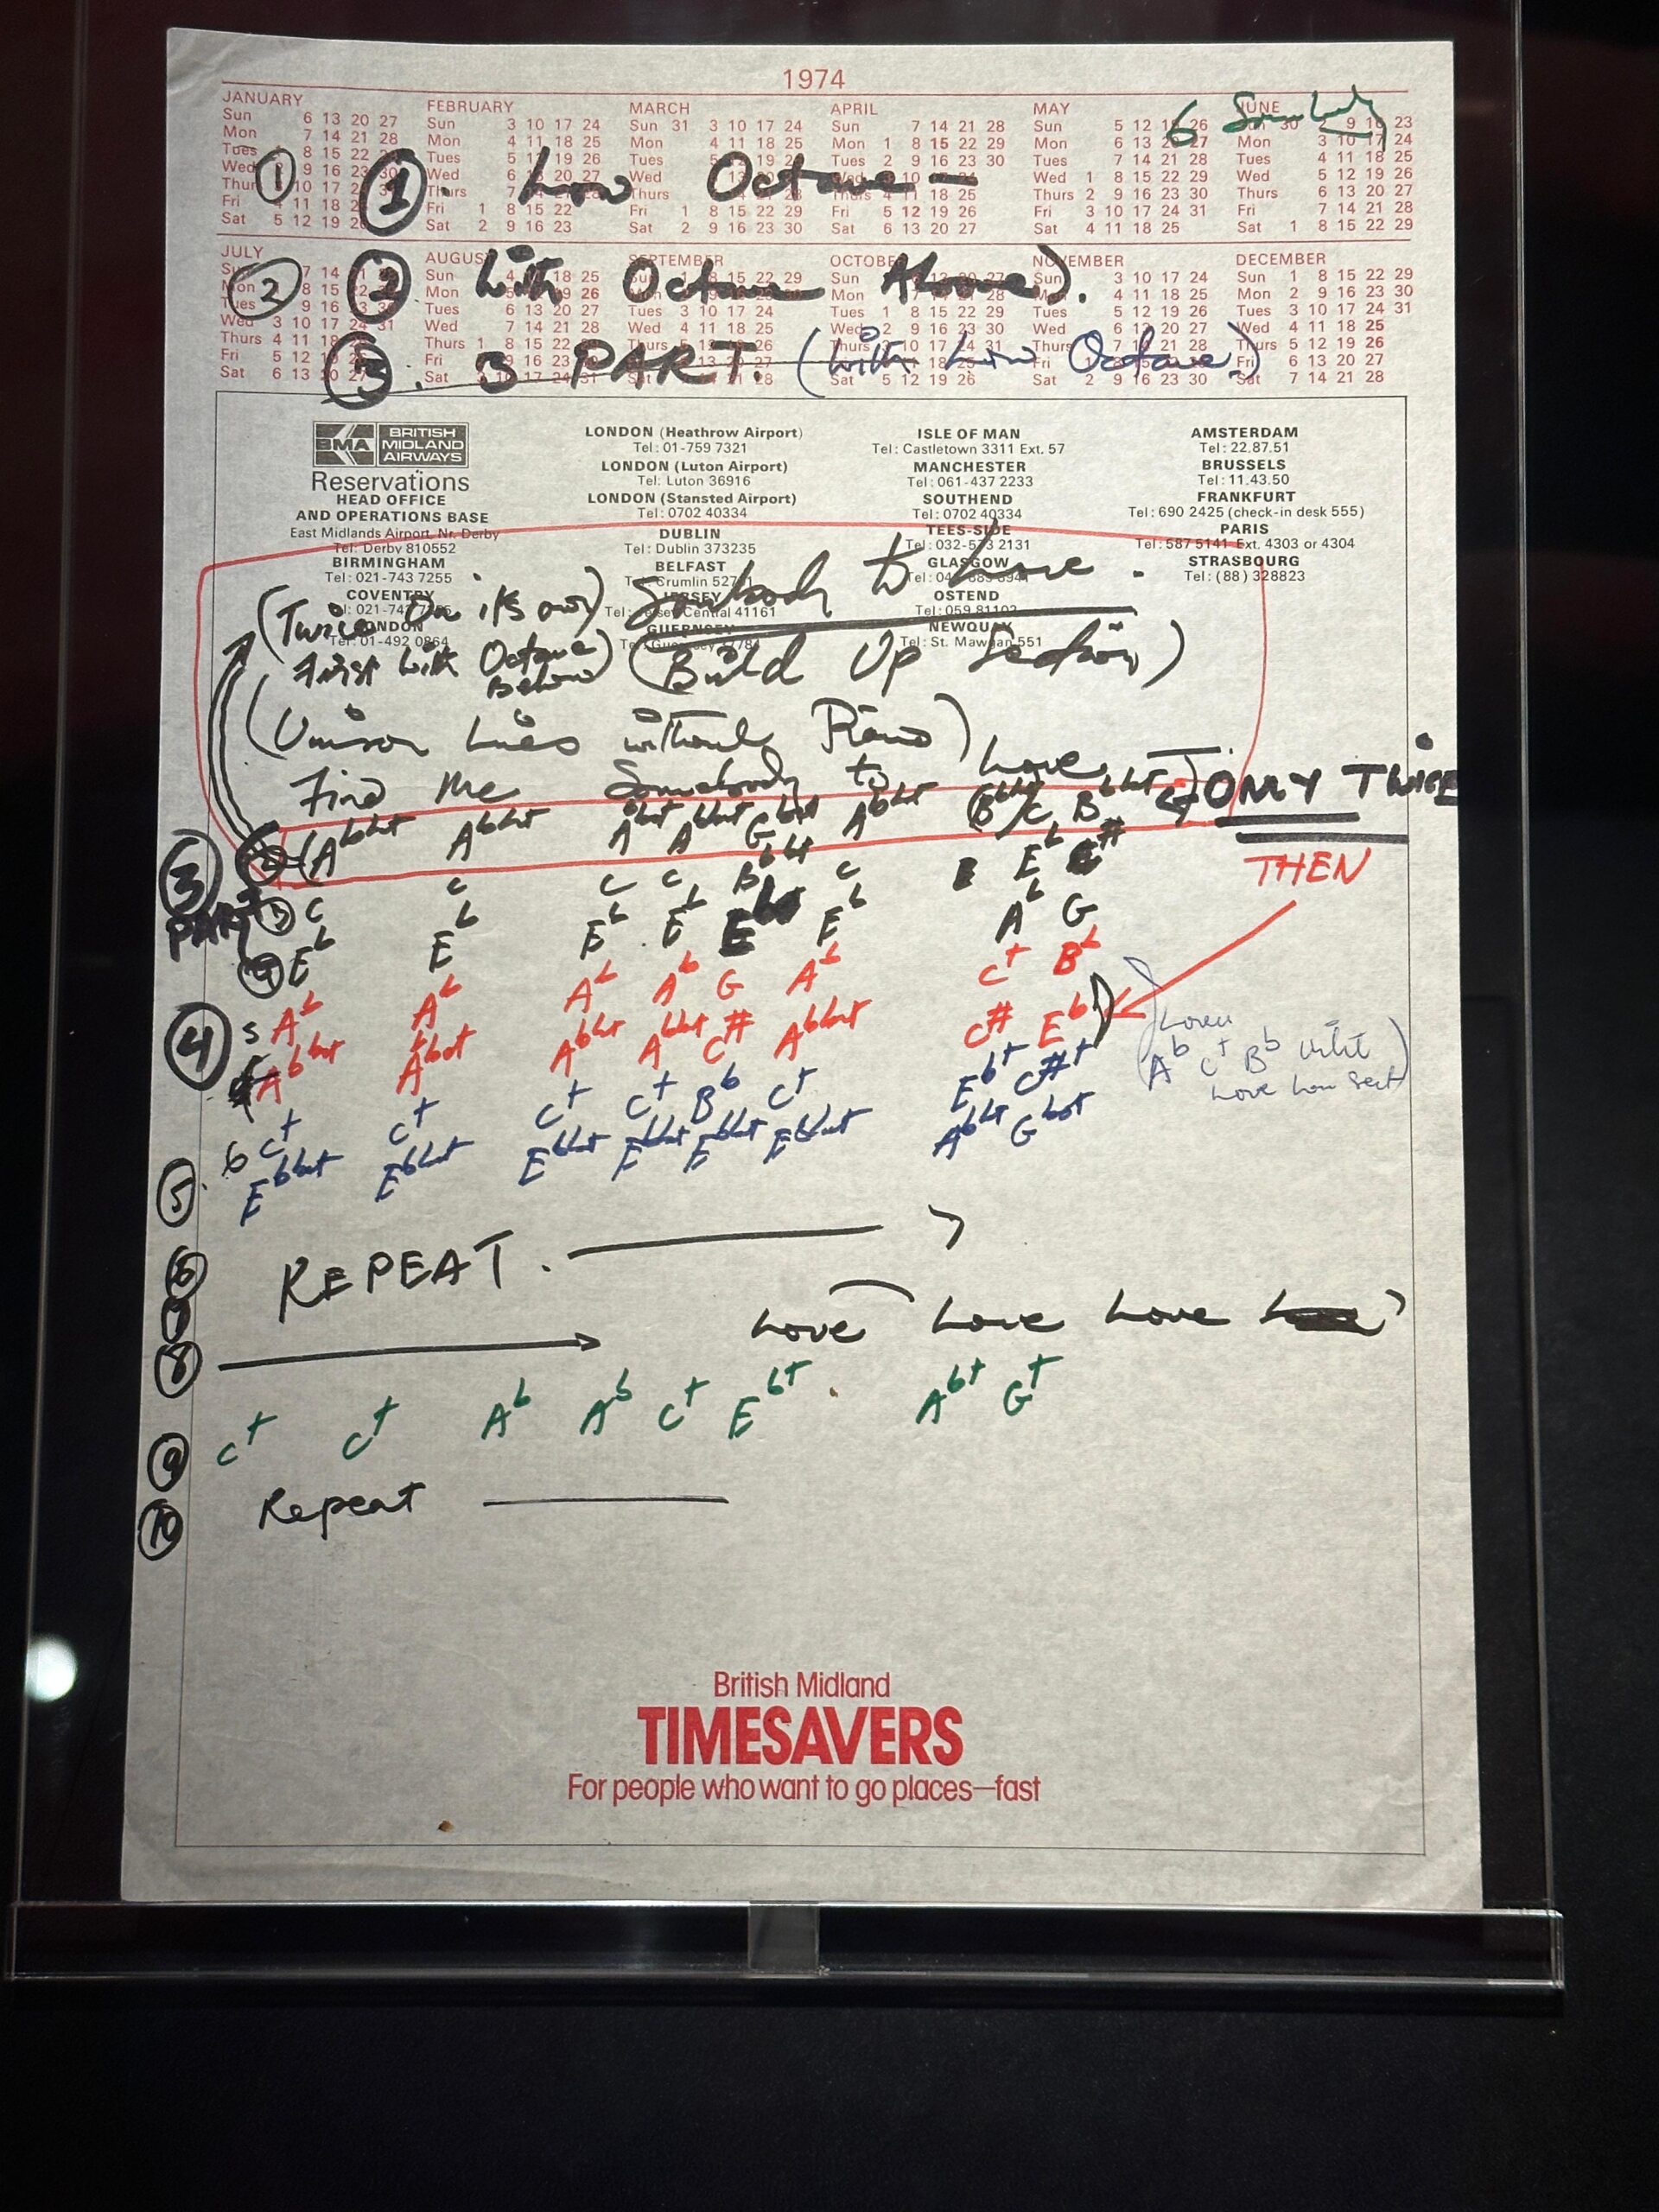 1974
JANUARY FEBRUARY MARCH APRIL MAY JUNE
Sun 6 13 20 27 Sun 3 10 17 24 Sun 31 3 10 17 24 Sun 7 14 21 28 Sun 5 12 26 Sun 30 9 16 23
6 Somebody
Mon 7 14 21 28 Mon 4 11 18 25 Mon 4 11 18 25 Mon 1 8 15 22 29 Mon 6 13 20 27 Mon 3 10 17 24
Tues 8 15 22 Tues 5 19 26 Tues 19 Tues 2 9 16 23 30 Tues 7 14 21 28 Tues 4 11 18 25
Wed 9 16 23 Wed 6 20 27 Wed Wed 10 Wed 1 8 15 22 29 Wed 5 12 19 26
① ①. Low Octave —
Thur 10 17 Thurs 7 Thurs Thurs 4 11 18 25 Thurs 2 9 16 23 30 Thurs 6 13 20 27
Fri 11 18 Fri 1 8 15 22 Fri 1 8 15 22 29 Fri 5 12 19 26 Fri 3 10 17 24 31 Fri 7 14 21 28
Sat 5 12 19 Sat 2 9 16 23 Sat 2 9 16 23 30 Sat 6 13 20 27 Sat 4 11 18 25 Sat 1 8 15 22 29
JULY AUGUST SEPTEMBER OCTOBER NOVEMBER DECEMBER
Sun 7 14 Sun 4 18 25 Sun 1 8 15 22 29 Sun 27 Sun 3 10 17 24 Sun 1 8 15 22 29
② ② With Octave Above).
Mon 8 15 22 Mon 26 Mon Mon 28 Mon 4 11 18 25 Mon 2 9 16 23 30
Tues 9 16 Tues 6 13 20 27 Tues 3 10 17 24 Tues 1 8 15 22 29 Tues 5 12 19 26 Tues 3 10 17 24 31
Wed 3 10 17 24 31 Wed 7 14 21 28 Wed 4 11 18 25 Wed 2 9 16 23 30 Wed 6 20 27 Wed 4 11 18 25
Thurs 4 11 18 Thurs 1 8 15 22 Thurs 26 Thurs 10 17 24 31 Thurs 7 21 28 Thurs 5 12 19 26
③. 3 PART. (With Low Octave.)
Fri 5 12 Fri 16 23 Fri 13 20 27 Fri Fri Fri 6 13 20 27
Sat 6 13 20 Sat 3 10 17 24 31 Sat 28 Sat 5 12 19 26 Sat 2 9 16 23 30 Sat 7 14 21 28
BMA BRITISH MIDLAND AIRWAYS
Reservations
HEAD OFFICE
AND OPERATIONS BASE
East Midlands Airport, Nr. Derby
Tel: Derby 810552
BIRMINGHAM
Tel: 021-743 7255
COVENTRY
LONDON
Tel: 01-492 0864
LONDON (Heathrow Airport)
Tel: 01-759 7321
LONDON (Luton Airport)
Tel: Luton 36916
LONDON (Stansted Airport)
Tel: 0702 40334
DUBLIN
Tel: Dublin 373235
BELFAST
JERSEY
GUERNSEY
ISLE OF MAN
Tel: Castletown 3311 Ext. 57
MANCHESTER
Tel: 061-437 2233
SOUTHEND
Tel: 0702 40334
TEES-SIDE
GLASGOW
OSTEND
Tel: 059 81102
NEWQUAY
Tel: St. Mawgan 551
AMSTERDAM
Tel: 22.87.51
BRUSSELS
Tel: 11.43.50
FRANKFURT
Tel: 690 2425 (check-in desk 555)
PARIS
Tel: 587 5141 Ext. 4303 or 4304
STRASBOURG
Tel: (88) 328823
(Twice On its own) Somebody to Love.
First With Octave Below) (Build Up Section)
(Unison Lines without Piano)
Find Me Somebody to Love
ONLY TWICE
(A♭bot A♭bot A♭bot A♭bot G bot A♭bot (B♭bot C B♭bot
THEN
③ PART
C C C C B♭bot C E♭
E♭ E♭ E♭ E♭ E♭ A♭ G
④ 5 A♭ A♭ A♭ A♭ G A♭ C+ B♭
A♭bot A♭bot A♭bot A♭bot C# A♭bot C# E♭
Lower
A♭ C+ B♭
6 C+ C+ C+ C+ B♭ C+ E♭+ C#+
⑤. E♭bot E♭bot E♭bot E♭bot E♭bot E♭bot A♭bot G bot
⑥ REPEAT.
⑦ Love Love Love
⑧
C+ C+ A♭ A♭ C+ E♭+. A♭+ G+
⑨
⑩ Repeat
British Midland
TIMESAVERS
For people who want to go places—fast